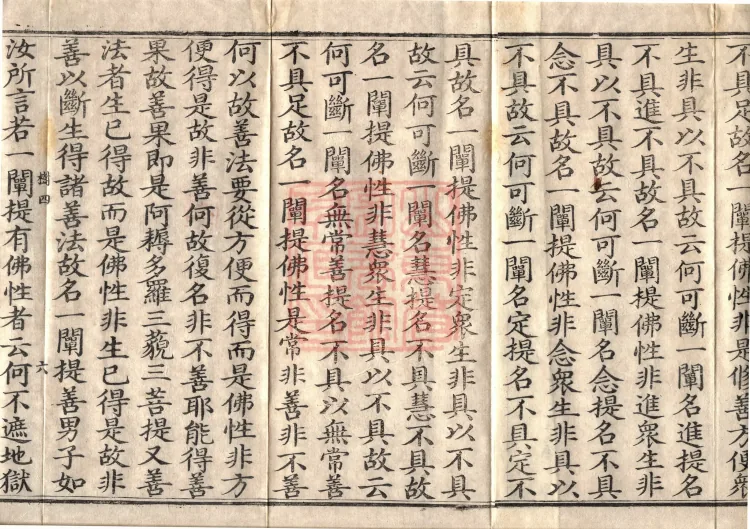 不具足故名一闡提佛性非是修善方便衆
生非具以不具故云何可斷一闡名進提名
不具進不具故名一闡提佛性非進衆生非
具以不具故云何可斷一闡名念提名不具
念不具故名一闡提佛性非念衆生非具以
不具故云何可斷一闡名定提名不具定不
具故名一闡提佛性非定衆生非具以不具
故云何可斷一闡名慧提名不具慧不具故
名一闡提佛性非慧衆生非具以不具故云
何可斷一闡名無常善提名不具以無常善
不具足故名一闡提佛性是常非善非不善
何以故善法要從方便而得而是佛性非方
便得是故非善何故復名非不善耶能得善
果故善果即是阿耨多羅三藐三菩提又善
法者生已得故而是佛性非生已得是故非
善以斷生得諸善法故名一闡提善男子如
樹四 六
汝所言若一闡提有佛性者云何不遮地獄